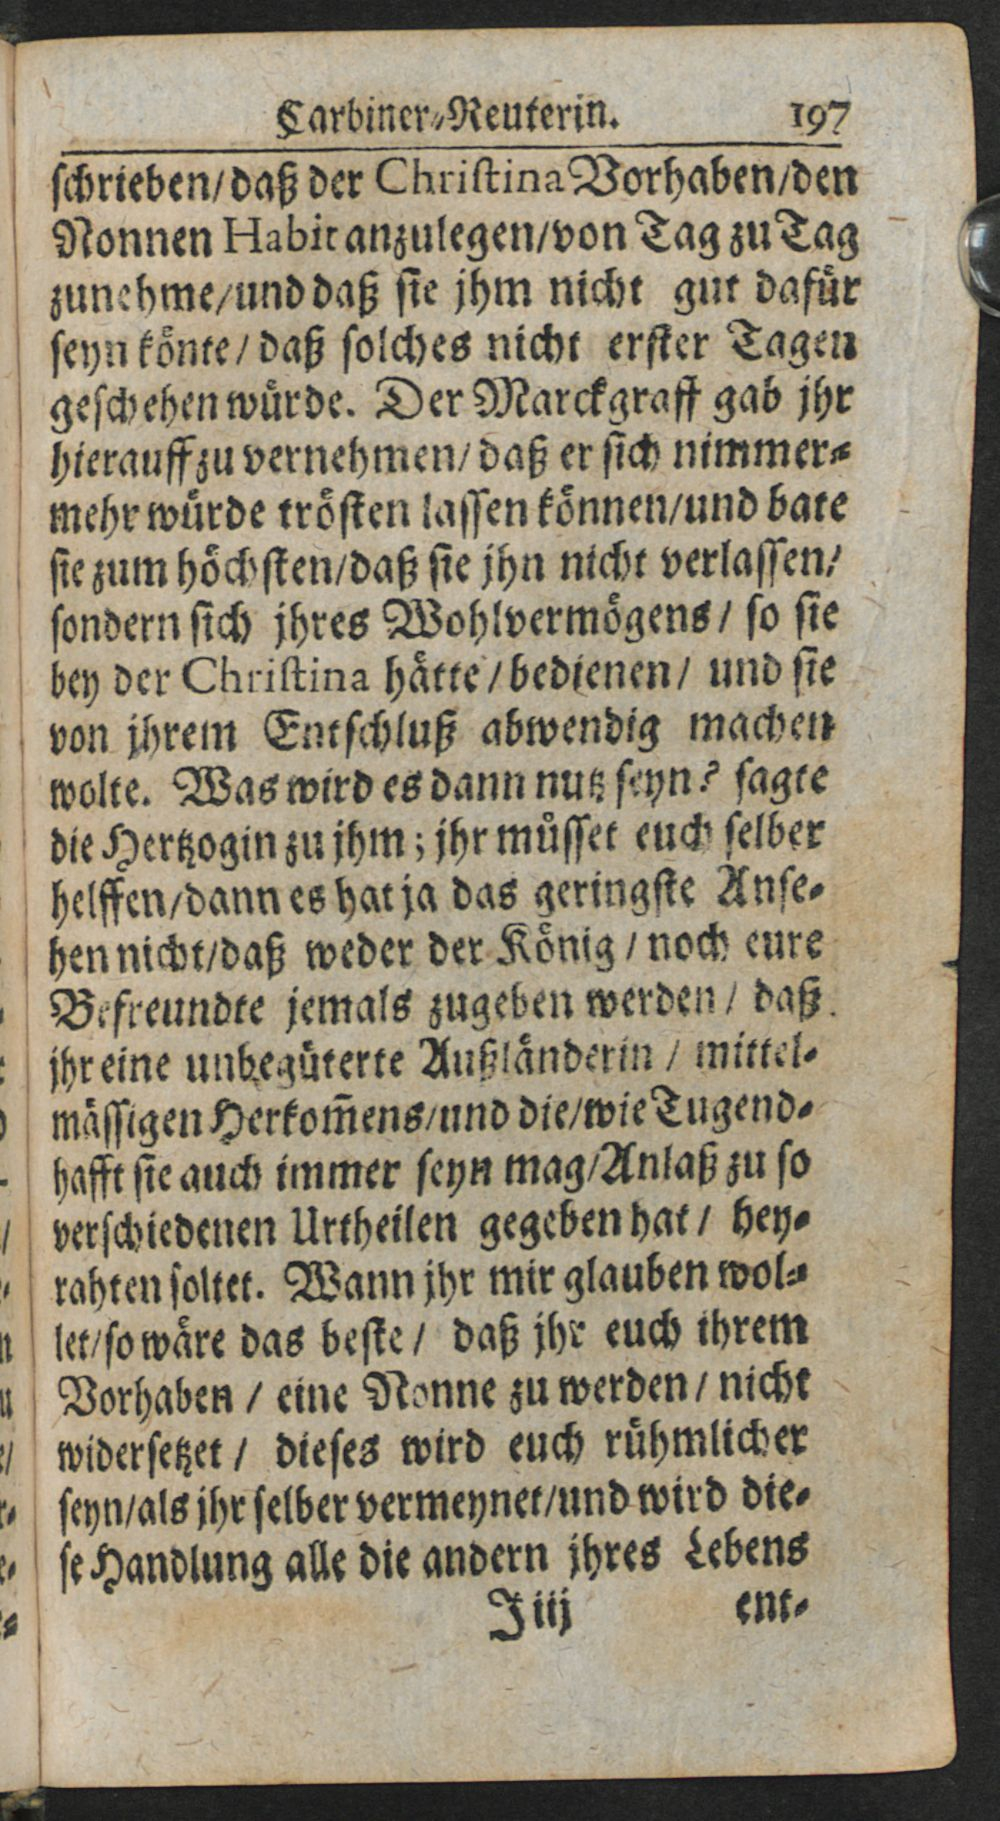 Carbiner-Reuterin. 197
schrieben/daß der Christina Vorhaben/den
Nonnen Habit anzulegen/von Tag zu Tag
zunehme/und daß sie jhm nicht gut dafür
seyn könte/ daß solches nicht erster Tagen
geschehen würde. Der Marckgraff gab jhr
hierauff zu vernehmen/ daß er sich nimmer-
mehr würde trösten lassen können/und bate
sie zum höchsten/daß sie jhn nicht verlassen/
sondern sich jhres Wohlvermögens / so sie
bey der Christina hätte / bedienen / und sie
von jhrem Entschluß abwendig machen
wolte. Was wird es dann nutz seyn? sagte
die Hertzogin zu jhm; jhr müsset euch selber
helffen/dann es hat ja das geringste Anse-
hen nicht/daß weder der König / noch eure
Befreundte jemals zugeben werden / daß
jhr eine unbegüterte Außländerin / mittel-
mässigen Herkom̃ens/und die/wie Tugend-
hafft sie auch immer seyn mag/Anlaß zu so
verschiedenen Urtheilen gegeben hat / hey-
rahten soltet. Wann jhr mir glauben wol-
let/so wäre das beste / daß jhr euch ihrem
Vorhaben / eine Nonne zu werden / nicht
widersetzet / dieses wird euch rühmlicher
seyn/als jhr selber vermeynet/und wird die-
se Handlung alle die andern jhres Lebens
J iij ent-